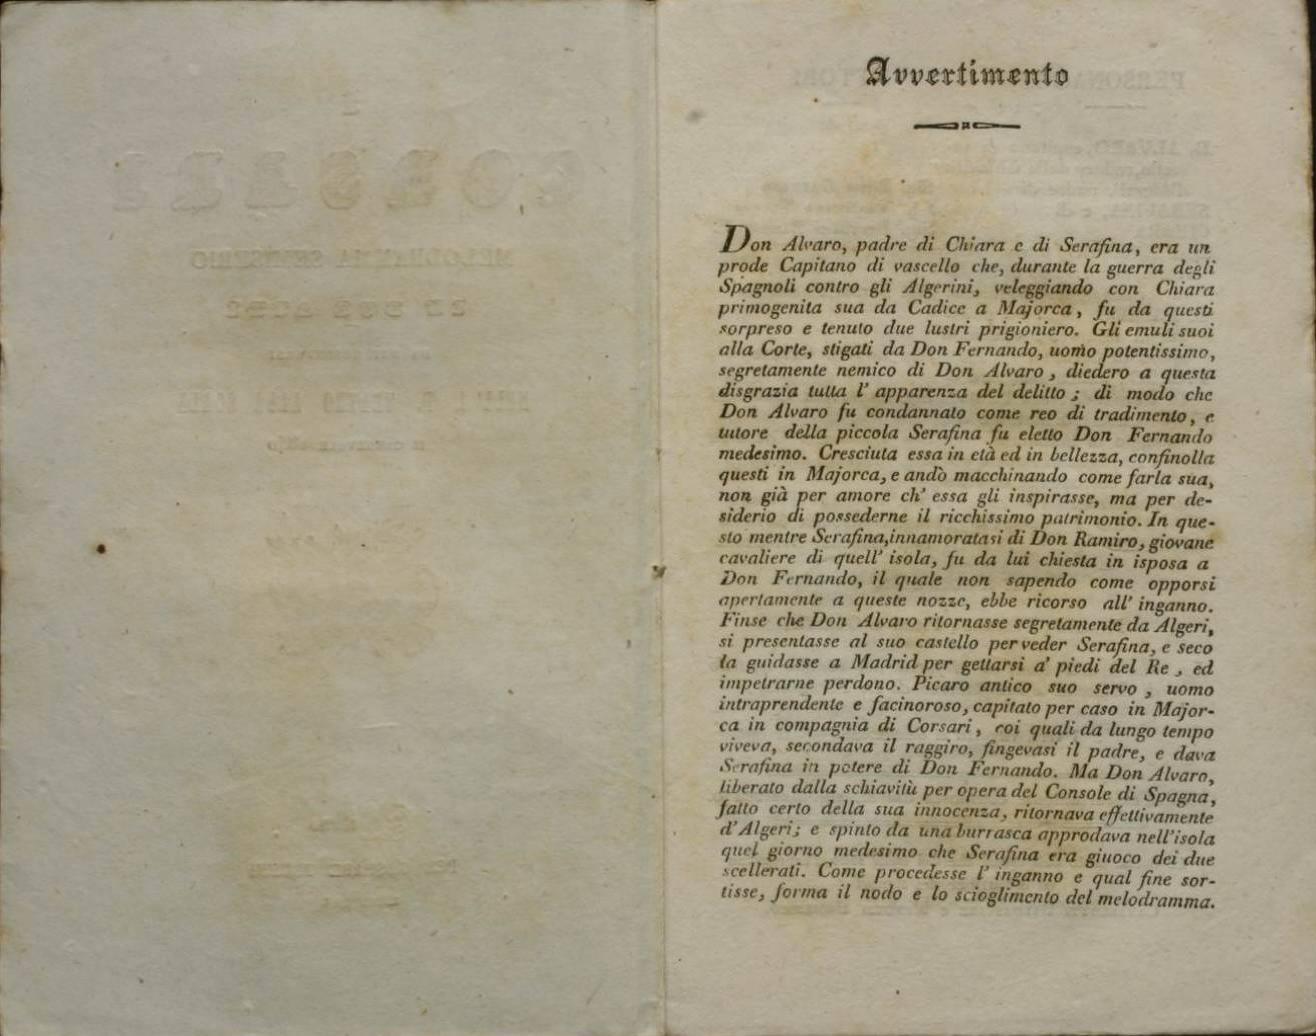 Avvertimento
Don Alvaro, padre di Chiara e di Serafina, era un
prode Capitano di vascello che, durante la guerra degli
Spagnoli contro gli Algerini, veleggiando con Chiara
primogenita sua da Cadice a Majorca, fu da questi
sorpreso e tenuto due lustri prigioniero. Gli emuli suoi
alla Corte, stigati da Don Fernando, uomo potentissimo,
segretamente nemico di Don Alvaro, diedero a questa
disgrazia tutta l' apparenza del delitto; di modo che
Don Alvaro fu condannato come reo di tradimento, e
tutore della piccola Serafina fu eletto Don Fernando
medesimo. Cresciuta essa in età ed in bellezza, confinolla
questi in Majorca, e andò macchinando come farla sua,
non già per amore ch' essa gli inspirasse, ma per de-
siderio di possederne il ricchissimo patrimonio. In que-
sto mentre Serafina, innamoratasi di Don Ramiro, giovane
cavaliere di quell' isola, fu da lui chiesta in isposa a
Don Fernando, il quale non sapendo come opporsi
apertamente a queste nozze, ebbe ricorso all' inganno.
Finse che Don Alvaro ritornasse segretamente da Algeri,
si presentasse al suo castello per veder Serafina, e seco
la guidasse a Madrid per gettarsi a' piedi del Re, ed
impetrarne perdono. Picaro antico suo servo, uomo
intraprendente e facinoroso, capitato per caso in Major-
ca in compagnia di Corsari, coi quali da lungo tempo
viveva, secondava il raggiro, fingevasi il padre, e dava
Serafina in potere di Don Fernando. Ma Don Alvaro,
liberato dalla schiavitù per opera del Console di Spagna,
fatto certo della sua innocenza, ritornava effettivamente
d'Algeri; e spinto da una burrasca approdava nell'isola
quel giorno medesimo che Serafina era giuoco dei due
scellerati. Come procedesse l' inganno e qual fine sor-
tisse, forma il nodo e lo scioglimento del melodramma.